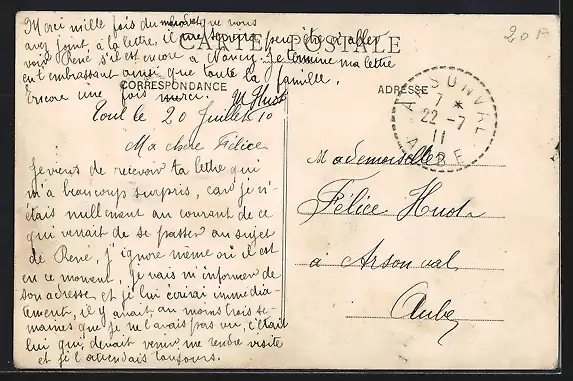 Merci mille fois du mandat que vous
avez joint à la lettre, il me servira peut-être à aller
voir René s'il est encore à Nancy. Je termine ma lettre
en t'embrassant ainsi que toute la famille.
Encore une fois merci. M Huot
CARTE POSTALE
CORRESPONDANCE
Toul le 20 Juillet 10
Ma chère Félice
Je viens de recevoir ta lettre qui
m'a beaucoup surpris, car je n'-
étais nullement au courant de ce
qui venait de se passer au sujet
de René, j'ignore même où il est
en ce moment, je vais m'informer de
son adresse et je lui écrirai immédia-
tement, il y avait au moins trois se-
maines que je ne l'avais pas vu, c'était
lui qui devait venir me rendre visite
et je l'attendais toujours.
20 B
ADRESSE
ARSONVAL
7 *
22 -7
11
AUBE
Mademoiselle
Félice Huot
à Arsonval
Aube